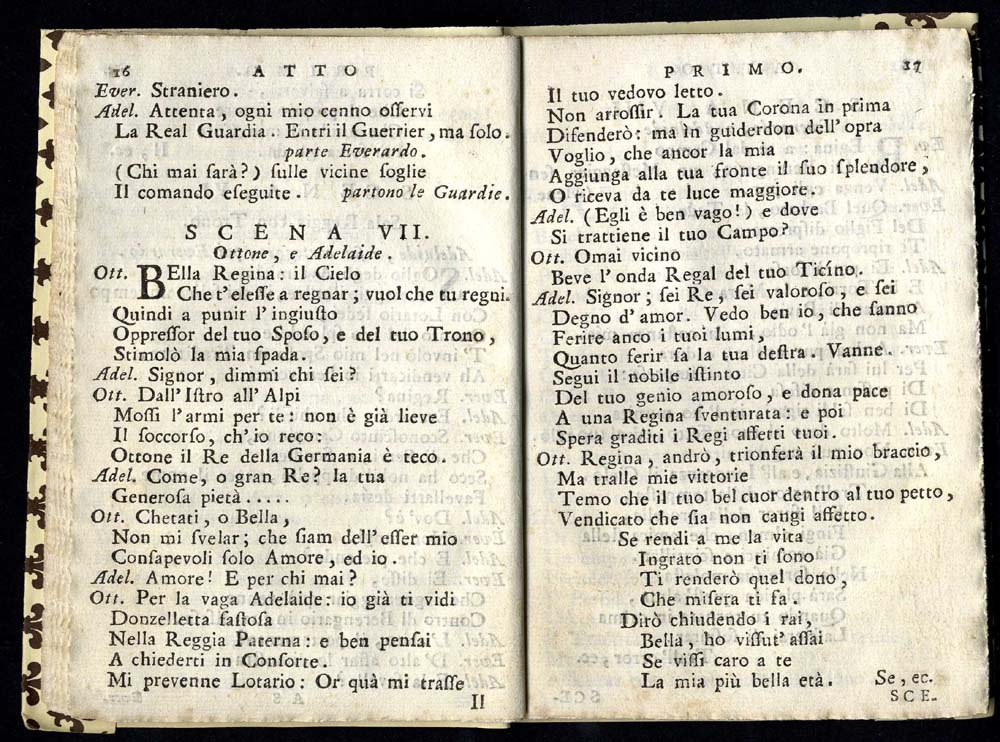 16 ATTO
Ever. Straniero.
Adel. Attenta, ogni mio cenno oſſervi
La Real Guardia. Entri il Guerrier, ma ſolo.
parte Everardo.
(Chi mai ſarà?) ſulle vicine ſoglie
Il comando eſeguite. partono le Guardie.
SCENA VII.
Ottone, e Adelaide.
Ott. BElla Regina: il Cielo
Che t'eleſſe a regnar; vuol che tu regni.
Quindi a punir l'ingiuſto
Oppreſſor del tuo Spoſo, e del tuo Trono,
Stimolò la mia ſpada.
Adel. Signor, dimmi chi ſei?
Ott. Dall'Iſtro all'Alpi
Moſſi l'armi per te: non è già lieve
Il ſoccorſo, ch'io reco:
Ottone il Re della Germania è teco.
Adel. Come, o gran Re? la tua
Generoſa pietà.....
Ott. Chetati, o Bella,
Non mi ſvelar; che ſiam dell'eſſer mio
Conſapevoli ſolo Amore, ed io.
Adel. Amore! E per chi mai?
Ott. Per la vaga Adelaide: io già ti vidi
Donzelletta faſtoſa
Nella Reggia Paterna: e ben penſai
A chiederti in Conſorte.
Mi prevenne Lotario: Or quà mi traſſe
Il
PRIMO. 17
Il tuo vedovo letto.
Non arroſſir. La tua Corona in prima
Difenderò: ma in guiderdon dell'opra
Voglio, che ancor la mia
Aggiunga alla tua fronte il ſuo ſplendore,
O riceva da te luce maggiore.
Adel. (Egli è ben vago!) e dove
Si trattiene il tuo Campo?
Ott. Omai vicino
Beve l'onda Regal del tuo Ticíno.
Adel. Signor; ſei Re, ſei valoroſo, e ſei
Degno d'amor. Vedo ben io, che ſanno
Ferire anco i tuoi lumi,
Quanto ferir ſa la tua deſtra. Vanne.
Segui il nobile iſtinto
Del tuo genio amoroſo, e dona pace
A una Regina ſventurata: e poi
Spera graditi i Regi affetti tuoi.
Ott. Regina, andrò, trionferà il mio braccio,
Ma tralle mie vittorie
Temo che il tuo bel cuor dentro al tuo petto,
Vendicato che ſia non cangi affetto.
Se rendi a me la vita
Ingrato non ti ſono
Ti renderò quel dono,
Che miſera ti fa.
Dirò chiudendo i rai,
Bella, ho viſſut'aſſai
Se viſſi caro a te
La mia più bella età. Se, ec.
SCE-